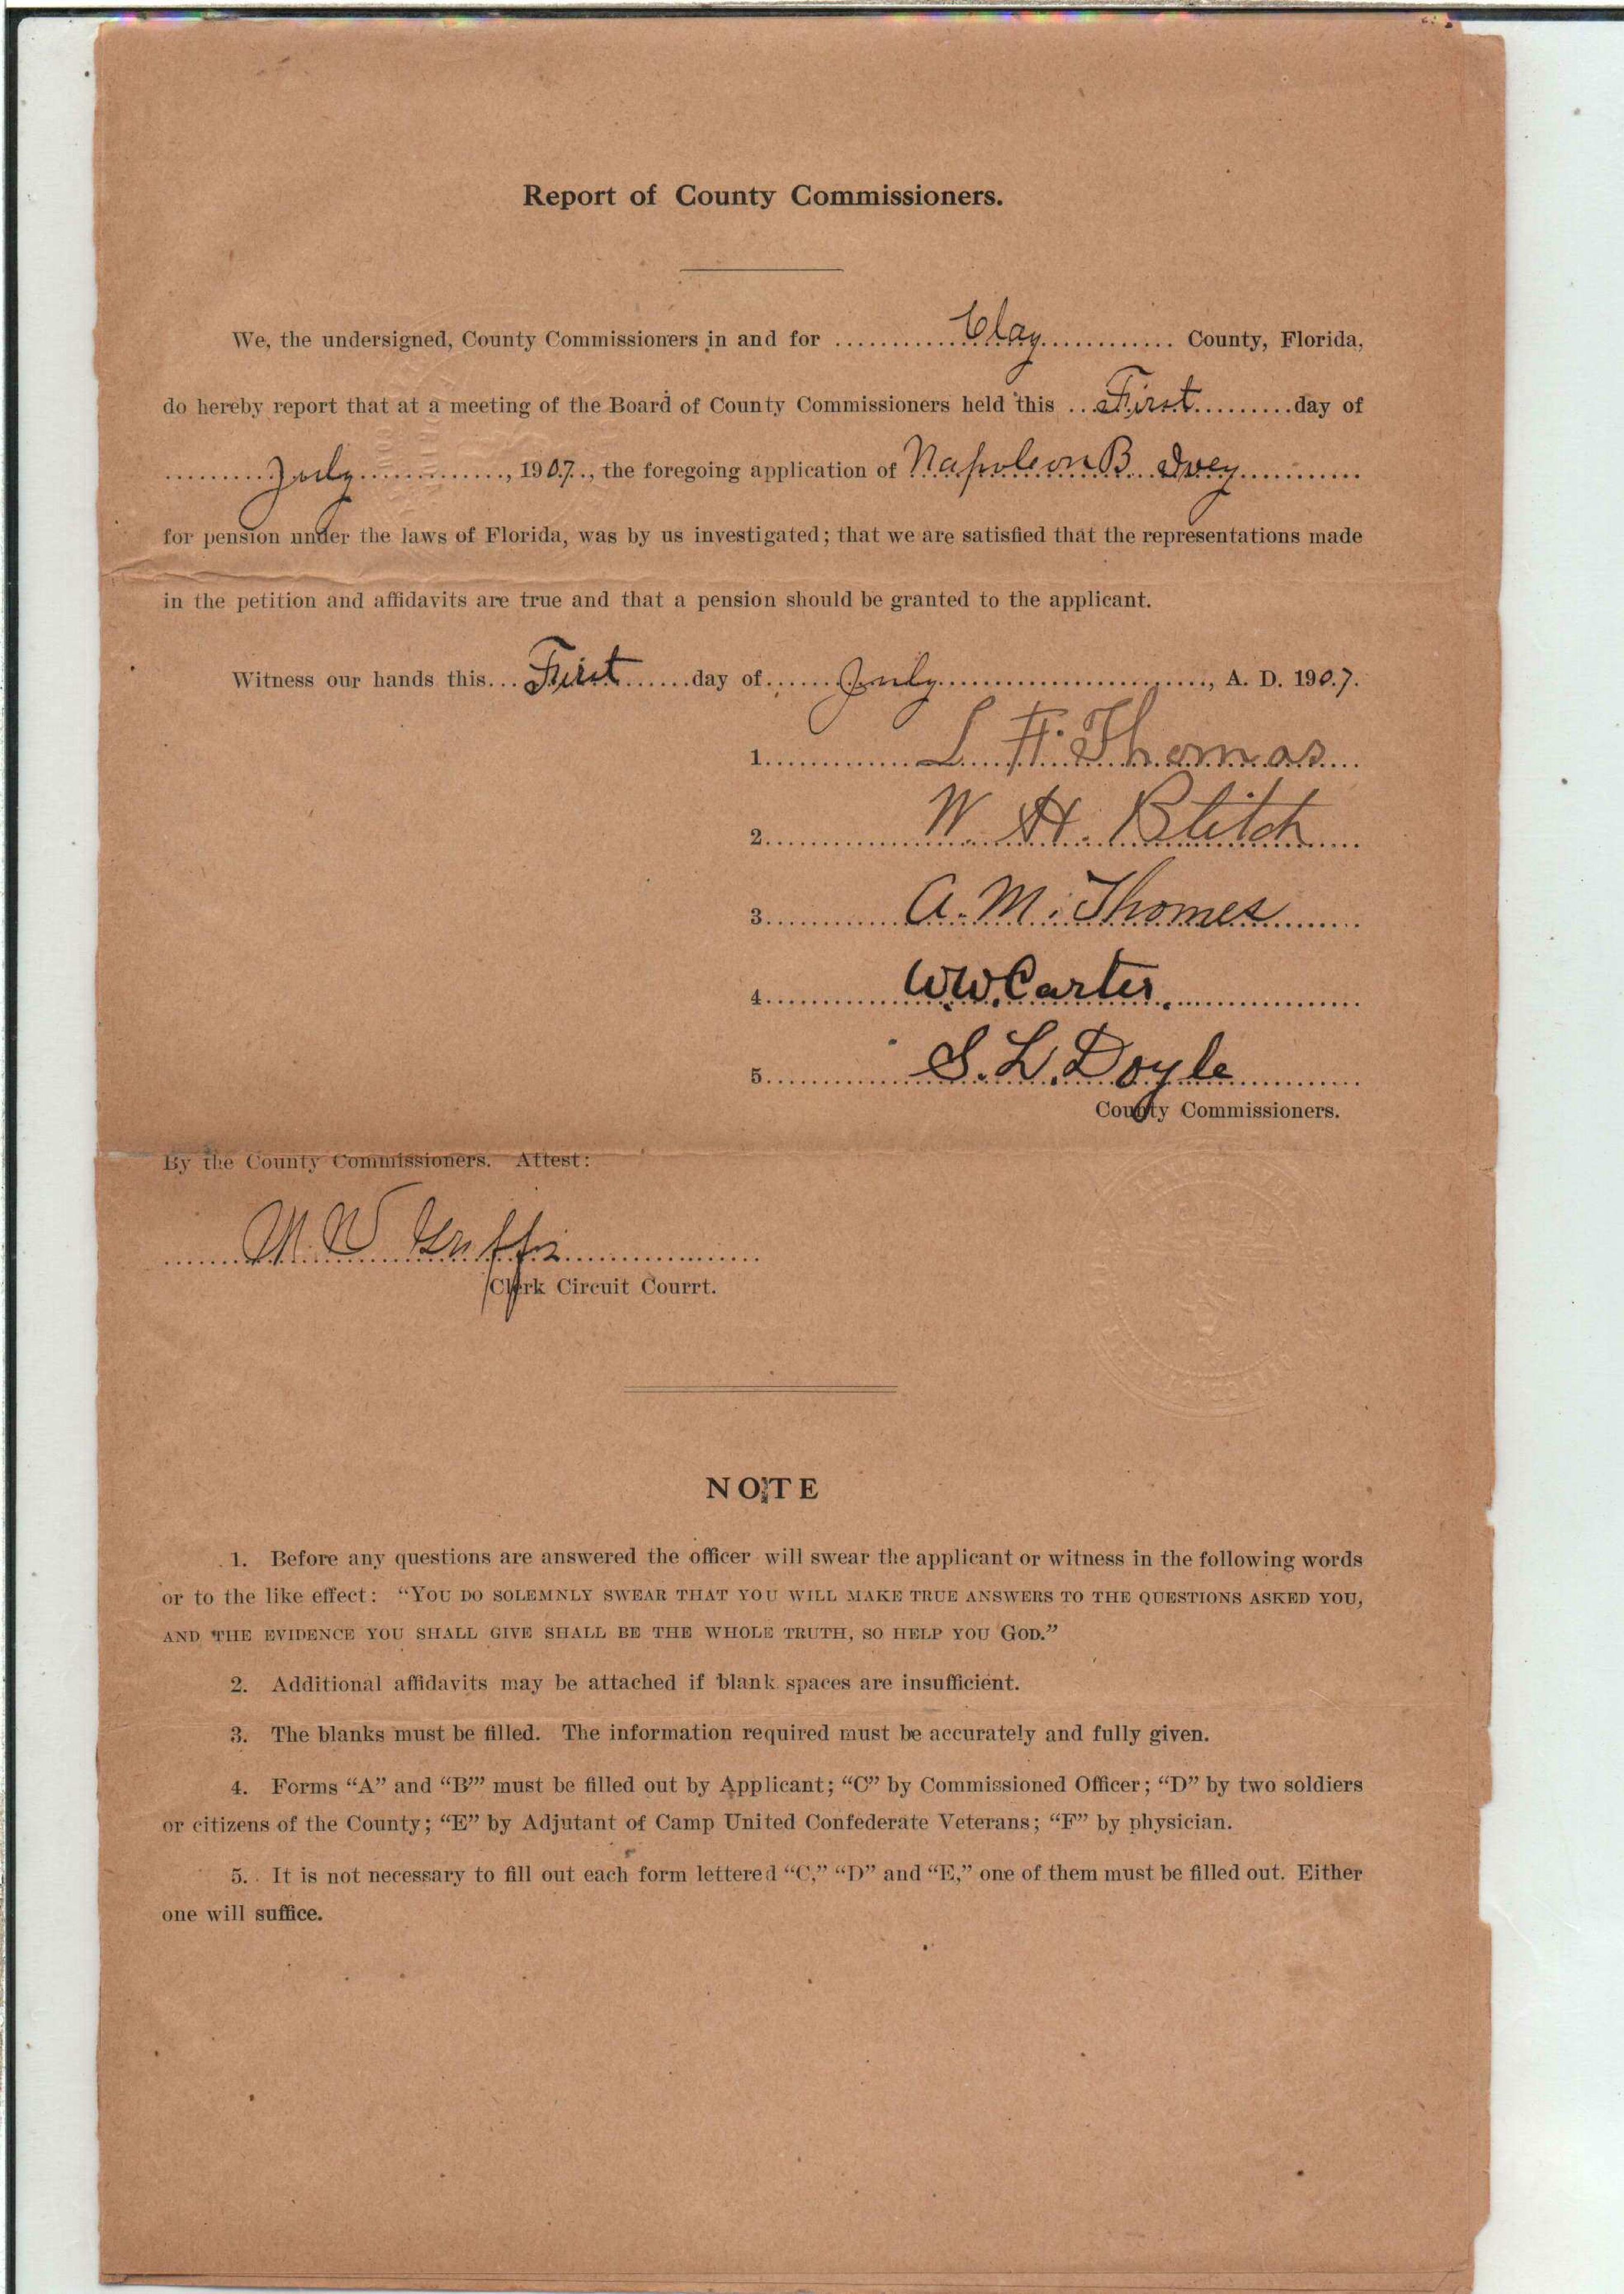 Report of County Commissioners.
We, the undersigned, County Commissioners in and for ............Clay............ County, Florida,
do hereby report that at a meeting of the Board of County Commissioners held this ...First.........day of
.........July............., 1907., the foregoing application of Napoleon B. Ivey............
for pension under the laws of Florida, was by us investigated; that we are satisfied that the representations made
in the petition and affidavits are true and that a pension should be granted to the applicant.
Witness our hands this...First......day of......July........................, A. D. 190.7.
1............L. H. Thomas...
2............W. H. Blitch....
3............A. M. Thomas.......
4............W. W. Carter...............
5............S. L. Doyle............
County Commissioners.
By the County Commissioners. Attest:
Clerk Circuit Courrt.
NOTE
1. Before any questions are answered the officer will swear the applicant or witness in the following words
or to the like effect: “YOU DO SOLEMNLY SWEAR THAT YOU WILL MAKE TRUE ANSWERS TO THE QUESTIONS ASKED YOU,
AND THE EVIDENCE YOU SHALL GIVE SHALL BE THE WHOLE TRUTH, SO HELP YOU GOD.”
2. Additional affidavits may be attached if blank spaces are insufficient.
3. The blanks must be filled. The information required must be accurately and fully given.
4. Forms “A” and “B’” must be filled out by Applicant; “C” by Commissioned Officer; “D” by two soldiers
or citizens of the County; “E” by Adjutant of Camp United Confederate Veterans; “F” by physician.
5. It is not necessary to fill out each form lettered “C,” “D” and “E,” one of them must be filled out. Either
one will suffice.